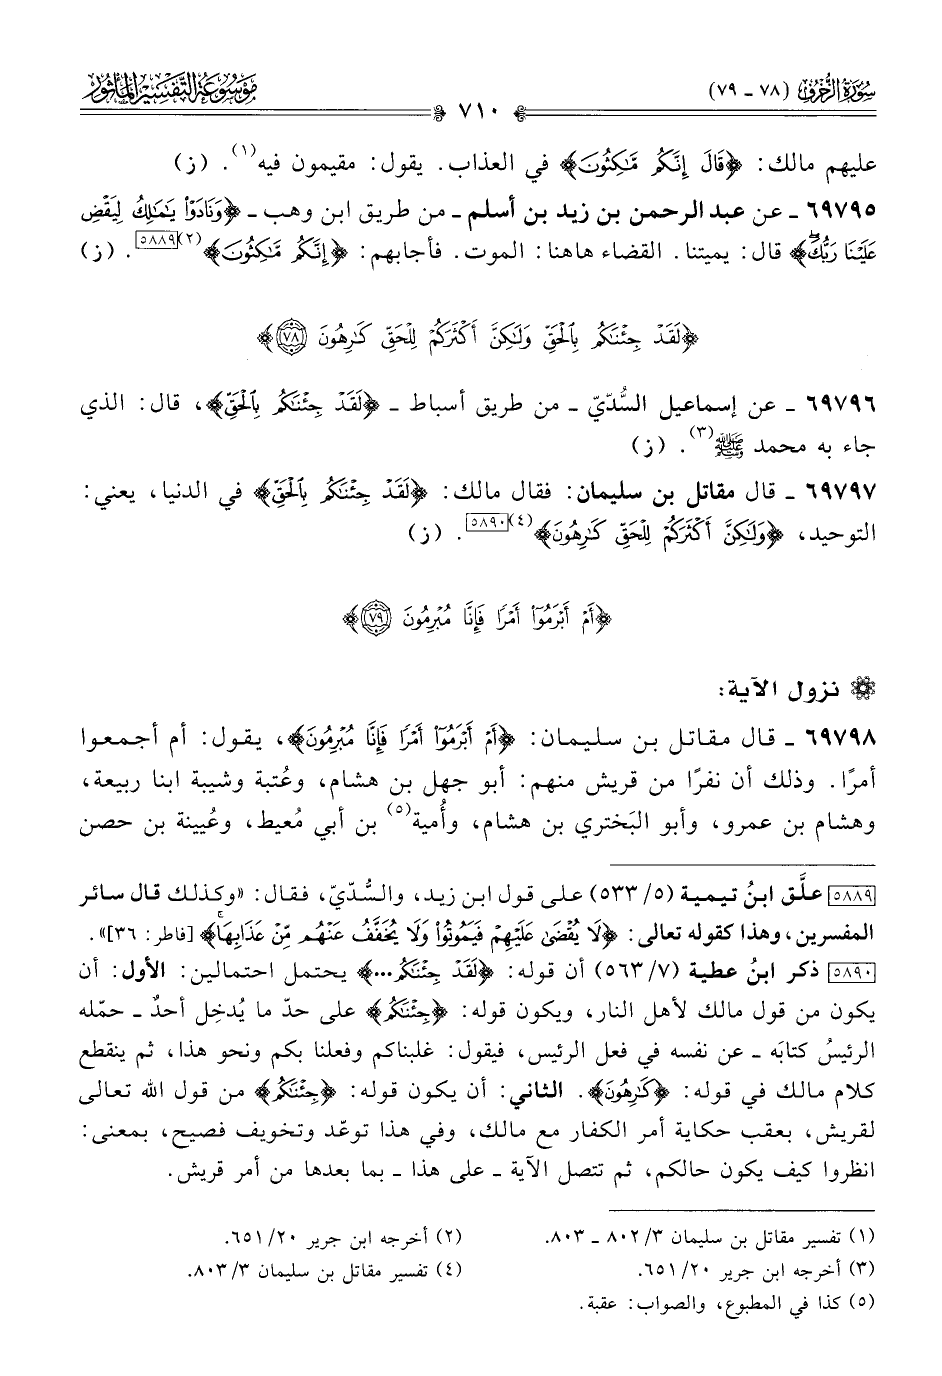 سُورَةُ الزُّخْرُفِ (٧٨ - ٧٩)
٧١٠
مَوْسُوعَةُ التَّفْسِيرِ المَأْثُورِ
عليهم مالك: ﴿قَالَ إِنَّكُم مَّٰكِثُونَ﴾ في العذاب. يقول: مقيمون فيه(١). (ز)
٦٩٧٩٥ - عن عبد الرحمن بن زيد بن أسلم - من طريق ابن وهب - ﴿وَنَادَوْا۟ يَٰمَٰلِكُ لِيَقْضِ
عَلَيْنَا رَبُّكَ ۖ﴾ قال: يميتنا. القضاء هاهنا: الموت. فأجابهم: ﴿إِنَّكُم مَّٰكِثُونَ﴾(٢)[٥٨٨٩]. (ز)
﴿لَقَدْ جِئْنَٰكُم بِٱلْحَقِّ وَلَٰكِنَّ أَكْثَرَكُمْ لِلْحَقِّ كَٰرِهُونَ ٧٨﴾
٦٩٧٩٦ - عن إسماعيل السُّدّيّ - من طريق أسباط - ﴿لَقَدْ جِئْنَٰكُم بِٱلْحَقِّ﴾، قال: الذي
جاء به محمد ﷺ(٣). (ز)
٦٩٧٩٧ - قال مقاتل بن سليمان: فقال مالك: ﴿لَقَدْ جِئْنَٰكُم بِٱلْحَقِّ﴾ في الدنيا، يعني:
التوحيد، ﴿وَلَٰكِنَّ أَكْثَرَكُمْ لِلْحَقِّ كَٰرِهُونَ﴾(٤)[٥٨٩٠]. (ز)
﴿أَمْ أَبْرَمُوٓا۟ أَمْرًا فَإِنَّا مُبْرِمُونَ ٧٩﴾
نزول الآية:
٦٩٧٩٨ - قال مقاتل بن سليمان: ﴿أَمْ أَبْرَمُوٓا۟ أَمْرًا فَإِنَّا مُبْرِمُونَ﴾، يقول: أم أجمعوا
أمرًا. وذلك أن نفرًا من قريش منهم: أبو جهل بن هشام، وعُتبة وشيبة ابنا ربيعة،
وهشام بن عمرو، وأبو البَختري بن هشام، وأُمية(٥) بن أبي مُعيط، وعُيينة بن حصن
[٥٨٨٩] علَّق ابنُ تيمية (٥/ ٥٣٣) على قول ابن زيد، والسُّدّيّ، فقال: «وكذلك قال سائر
المفسرين، وهذا كقوله تعالى: ﴿لَا يُقْضَىٰ عَلَيْهِمْ فَيَمُوتُوا۟ وَلَا يُخَفَّفُ عَنْهُم مِّنْ عَذَابِهَا ۚ﴾ [فاطر: ٣٦]».
[٥٨٩٠] ذكر ابنُ عطية (٧/ ٥٦٣) أن قوله: ﴿لَقَدْ جِئْنَٰكُم...﴾ يحتمل احتمالين: الأول: أن
يكون من قول مالك لأهل النار، ويكون قوله: ﴿جِئْنَٰكُم﴾ على حدّ ما يُدخِل أحدٌ - حمّله
الرئيسُ كتابَه - عن نفسه في فعل الرئيس، فيقول: غلبناكم وفعلنا بكم ونحو هذا، ثم ينقطع
كلام مالك في قوله: ﴿كَٰرِهُونَ﴾. الثاني: أن يكون قوله: ﴿جِئْنَٰكُم﴾ من قول الله تعالى
لقريش، بعقب حكاية أمر الكفار مع مالك، وفي هذا توعّد وتخويف فصيح، بمعنى:
انظروا كيف يكون حالكم، ثم تتصل الآية - على هذا - بما بعدها من أمر قريش.
(١) تفسير مقاتل بن سليمان ٣/ ٨٠٢ - ٨٠٣.
(٢) أخرجه ابن جرير ٢٠/ ٦٥١.
(٣) أخرجه ابن جرير ٢٠/ ٦٥١.
(٤) تفسير مقاتل بن سليمان ٣/ ٨٠٣.
(٥) كذا في المطبوع، والصواب: عقبة.